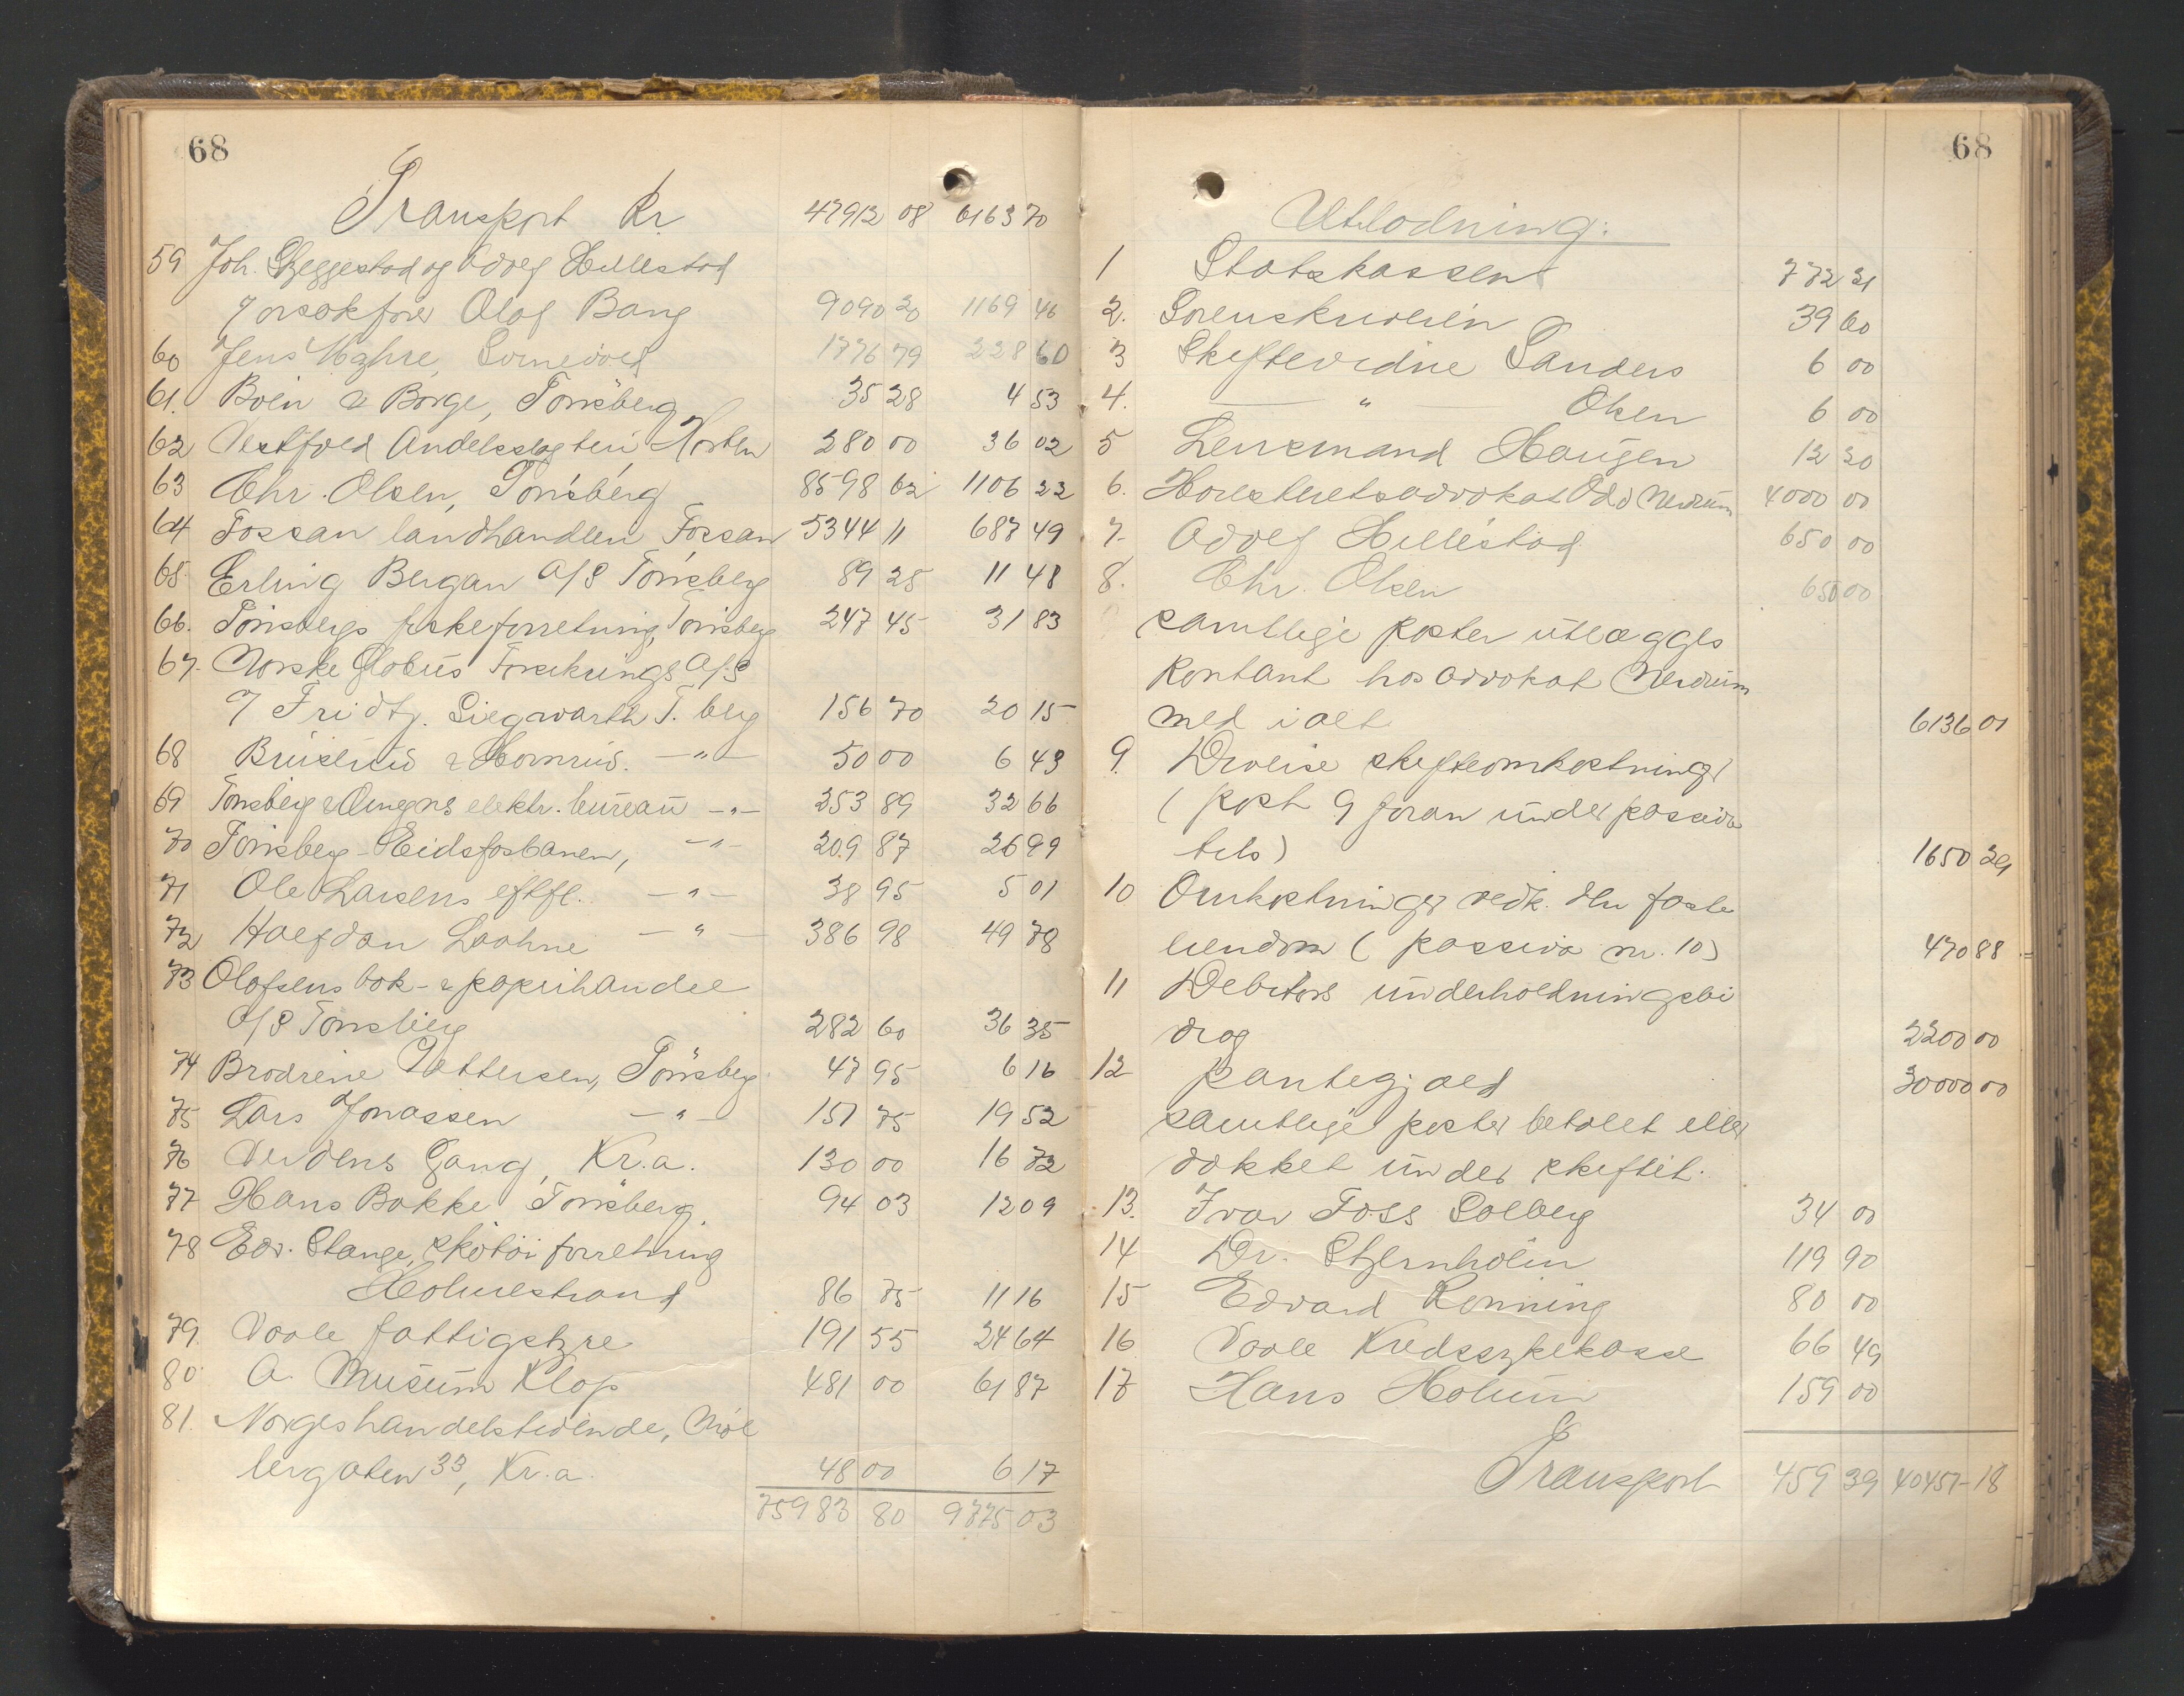 68
Transport Kr. 47912 08 6163 70
59 Joh. Skjeggestad og Adolf Hillestad
v/ orsakfører Olaf Bang 9090 20 1169 46
60 Jens Myhre, 1776 79 228 60
61. Boen & Borge, Tönsberg 35 28 4 53
62 Vestfold Andelsslagteri Horten 280 00 36 02
63 Chr. Olsen, Tönsberg 8598 62 1106 22
64 Fossan landhandleri Fossan 5344 11 687 49
65 Erling Bergan A/S Tönsberg 89 25 11 48
66. Tönsbergs fiskeforretning, Tönsberg 247 45 31 83
67. Norske Globus Forsikrings A/S
v/ Fridtj. Siegwarth T.berg 156 70 20 15
68 & Hornrud. —"— 50 00 6 43
69 Tönsberg & Omegns elektr. bureau —"— 253 89 32 66
70 Tönsberg-Eidsfosbanen, —"— 209 87 26 99
71 Ole Larsens eftfl. —"— 38 95 5 01
72 Halfdan Laahne —"— 386 98 49 78
73 Olafsens bok- & papirhandel
A/S Tönsberg 282 60 36 35
74 Brödrene Pettersen, Tönsberg 47 95 6 16
75 Lars Jonassen —"— 151 75 19 52
76 Verdens Gang, Kr.a. 130 00 16 72
77 Hans Bakke Tönsberg. 94 03 12 09
78 Edv. Stange, skotöiforretning
Holmestrand 86 75 11 16
79. Vaale fattigstyre 191 55 24 64
80 A. Musum Klop 481 00 61 87
81. Norges handelstidende, Möl
lergaten 33, Kr.a. 48 00 6 17
75983 80 9775 03
68
Utlodning:
1 Statskassen 772 21
2. Sorenskriveren 39 60
3 Skiftevidne Sanders 6 00
4. —"— Olsen 6 00
5 Lensmand Haugen 12 20
6. Höiesteretsadvokat Odd Nerdrum 4000 00
7. Adolf Hillestad 650 00
8. Chr. Olsen 650 00
samtlige poster utlægges
kontant hos advokat Nerdrum
med i alt 6136 01
9. Diverse skifteomkostninger
(post 9 foran under passiva
tils) 1650 29
10 Omkostninger vedk. den faste
eiendom (passiva nr. 10) 470 88
11 Debitors underholdningsbi
drag 2200 00
12 Pantegjæld 30000 00
samtlige poster betalet eller
dækket under skiftet.
13. Ivar Foss Solberg 34 00
14 Dr. Stjernholm 119 90
15 Edvard Rönning 80 00
16 Vaale Kredssykekasse 66 49
17 Hans Holum 159 00
Transport 459 39 40457-18